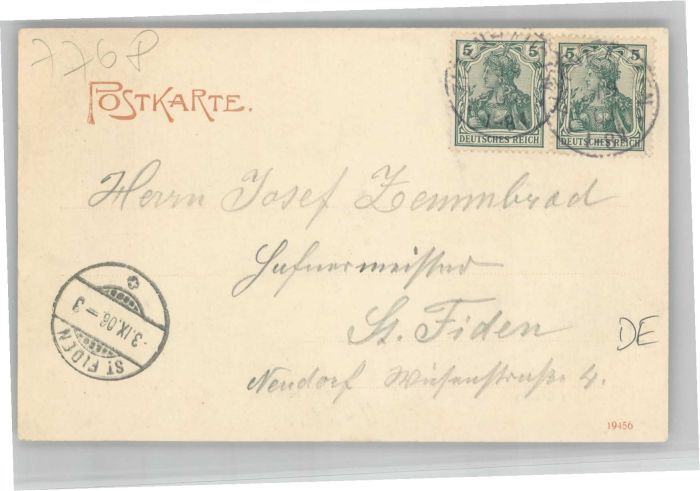 7768
POSTKARTE.
5 5
DEUTSCHES REICH
5 5
DEUTSCHES REICH
Herrn Josef Zemmbrod
Hafnermeister
St. Fiden
Neudorf Wiesenstraße 4.
-3.IX.06-3
ST. FIDEN
DE
19456